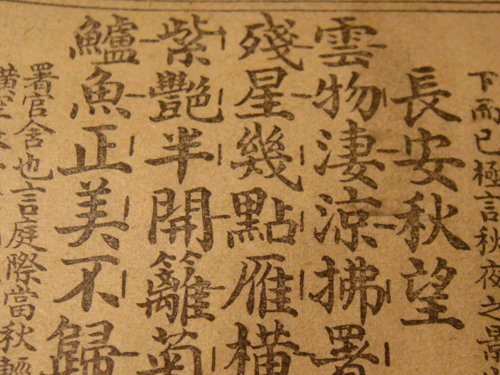 下而已極言秋夜之景
長安秋望
雲物淒涼拂署
殘星幾點雁橫
紫艷半開籬菊
鱸魚正美不歸
署官舍也言庭際當秋輕
橫空